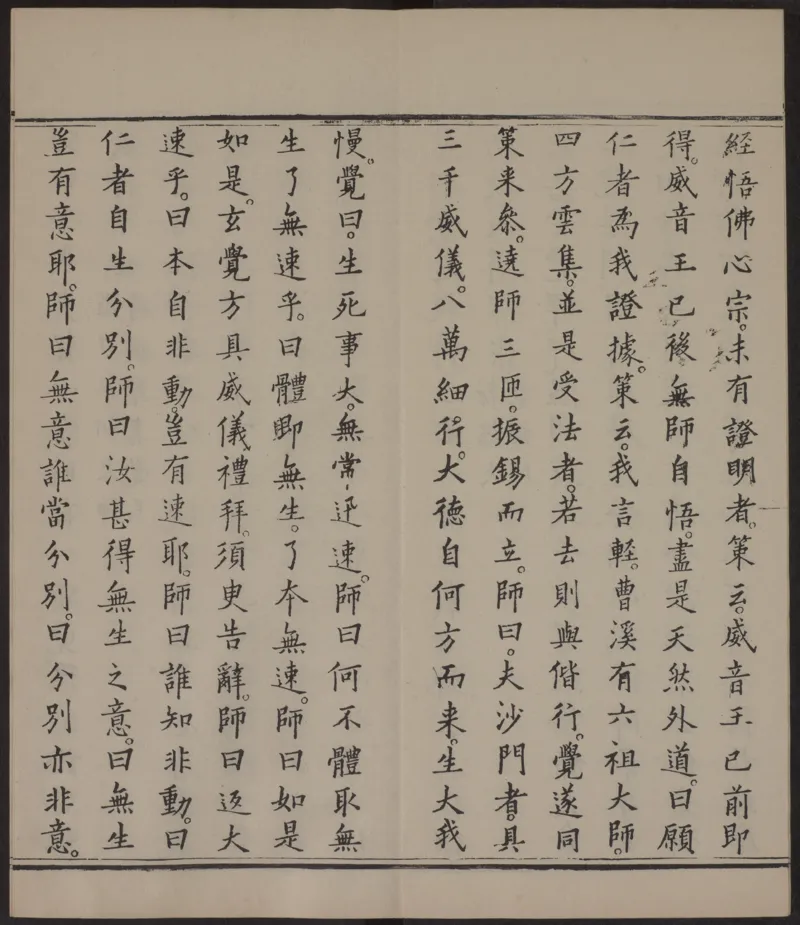 経悟佛心宗。未有證明者。策云。威音王已前即
得。威音王已後無師自悟。盡是天然外道。曰願
仁者為我證據。策云。我言輕。曹溪有六祖大師。
四方雲集。並是受法者。若去則與偕行。覺遂同
策来叅。遶師三匝。振錫而立。師曰。夫沙門者。具
三千威儀。八萬細行。大德自何方而来。生大我
慢。覺曰。生死事大。無常迅速。師曰何不體取無
生了無速乎。曰體即無生。了本無速。師曰如是
如是。玄覺方具威儀禮拜。須臾告辭。師曰返大
速乎。曰本自非動。豈有速耶。師曰誰知非動。曰
仁者自生分別。師曰汝甚得無生之意。曰無生
豈有意耶。師曰無意誰當分別。曰分別亦非意。